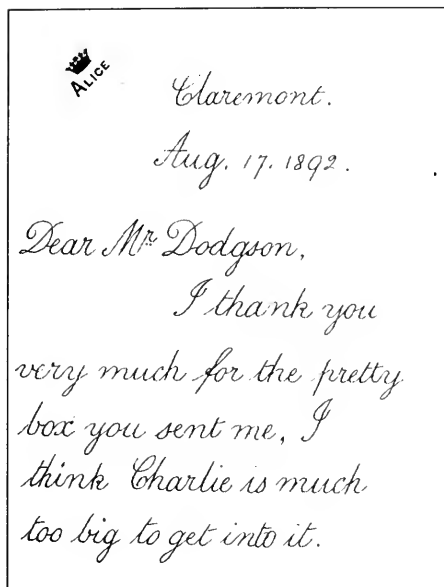 ALICE
Claremont.
Aug. 17. 1892.
Dear Mr Dodgson,
I thank you
very much for the pretty
box you sent me, I
think Charlie is much
too big to get into it.